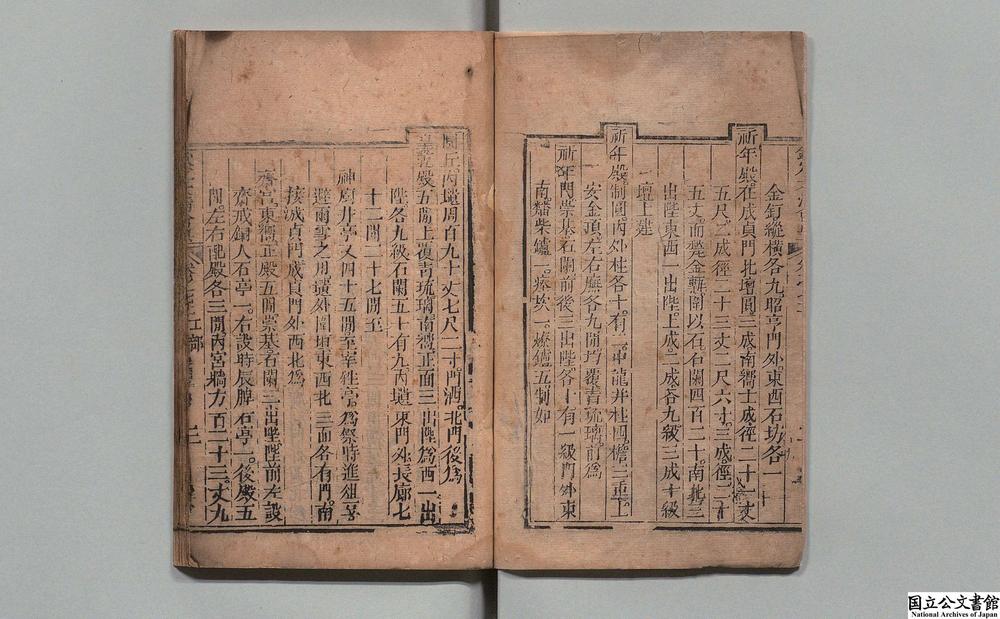 金釘縱橫各九昭亨門外東西石坊各一
祈年殿在成貞門北壇圓三成南嚮士成徑二十一丈
五尺二成徑二十三丈二尺六寸三成徑二十
五丈面甃金甎圍以石石闌四百二十南北三
出陛東西一出陛上成二成各九級三成十級
壇上建
祈年殿制圓內外柱各十有二中龍井柱四檐三重上
安金頂左右廡各九間均覆青琉璃前為
祈年門崇基石闌前後三出陛各十有一級門外東
南燔柴爐一瘞坎一燎爐五制如
圜丘內壝周百九十丈七尺二寸門四北門後為
皇乾殿五間上覆青琉璃南嚮正面三出陛為西一出
陛各九級石闌五十有九內壝東門外長廊七
十二間二十七間至
神廚井亭又四十五間至宰牲亭為祭時進俎
避雨雪之用壝外圍垣東西北三面各有門南
接成貞門成貞門外西北為
齋宮東嚮正殿五間崇基石闌三出陛陛前左設
齋戒銅人石亭一右設時辰牌石亭一後殿五
間左右配殿各三間內宮牆方百二十三丈九
国立公文書館
National Archives of Japan